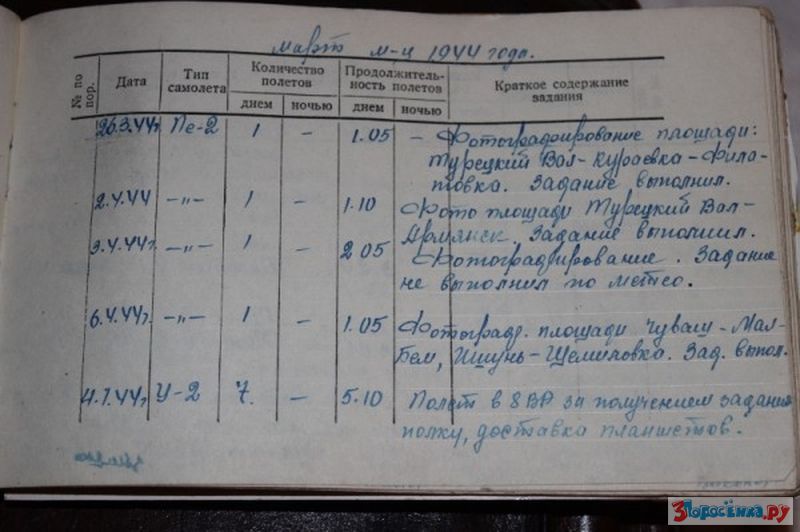 Март м-ц 1944 года.
№ по пор. Дата Тип самолета Количество полетов Продолжитель-ность полетов Краткое содержание задания
днем ночью днем ночью
26.3.44г. Пе-2 1 – 1.05 – Фотографирование площади:
Турецкий Вал – Кураевка – Фила-
товка. Задание выполнил.
2.4.44 –"– 1 – 1.10 Фото площади Турецкий Вал –
Армянск. Задание выполнил.
3.4.44г. –"– 1 – 2 05 Фотографирование. Задание
не выполнил по метео.
6.4.44г. –"– 1 – 1.05 Фотограф. площади Чуваш – Мал-
Бем, Ишунь – Щемиловка. Зад. выпол.
4.1.44г У-2 7. – 5.10 Полет в 8ВА за получением задания
полку, доставка планшетов.
3Поросёнка.ру